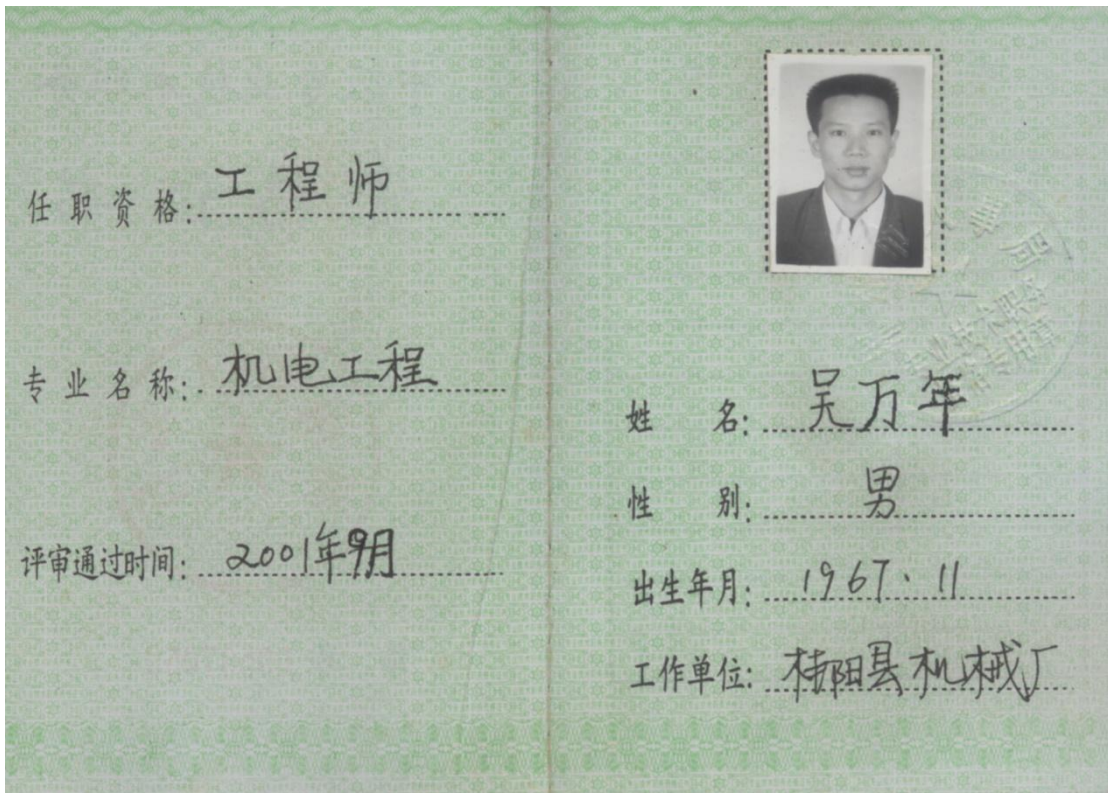 任职资格: 工程师
专业名称: 机电工程
评审通过时间: 2001年9月
姓 名: 吴万年
性 别: 男
出生年月: 1967.11
工作单位: 桂阳县机械厂